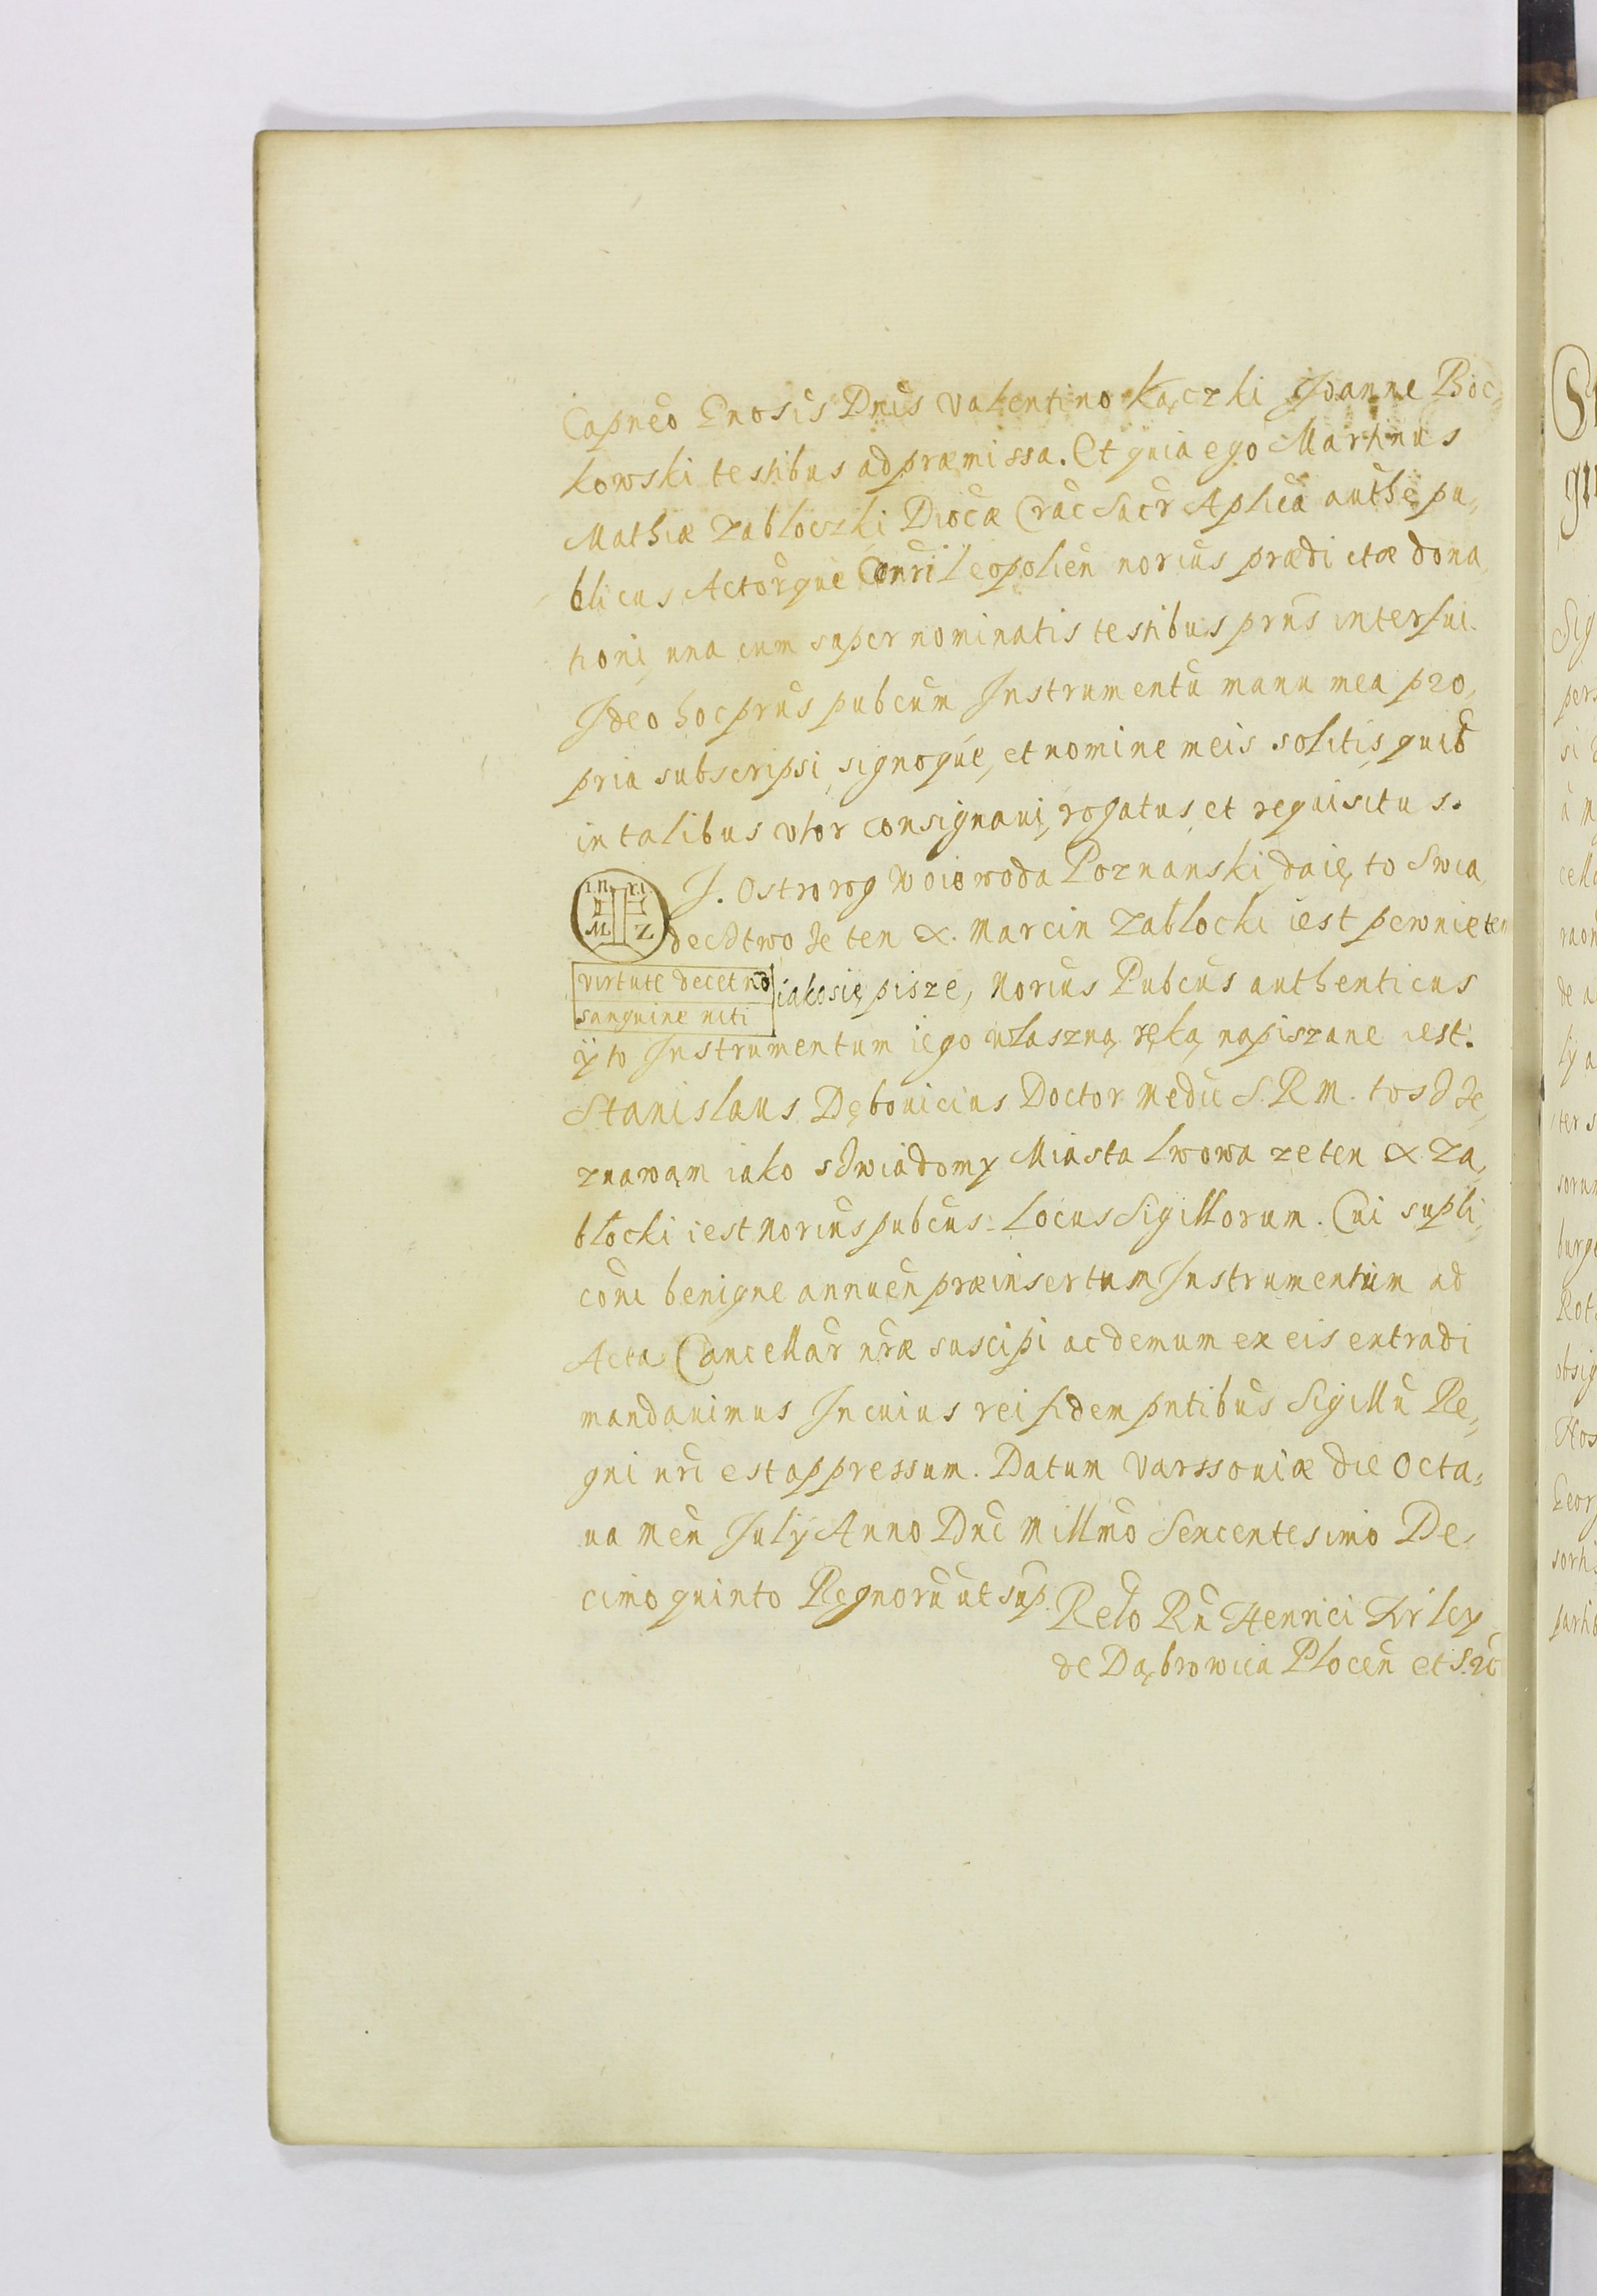 Capneo Gnosis Dnis Valentino Kączki Joanne Boc,
kowski testibus ad præmissa. Et quia ego Martinus
Mathiæ Zabloczki Diocæ Crac Sacr Aplica authe pu,
blicus Actorque Conri Leopolien norius prædictæ dona,
tioni, una cum super nominatis testibus prns interfui.
Ideo hoc prns pubcum Instrumentu manu mea pro,
pria subscripsi, signoque, et nomine meis solitis, quib
in talibus utor consignaui, rogatus, et requisitus.
I.N. R.I.
M Z
J. Ostrorog Woiewoda Poznanski, daię to Swia,
dectwo że ten X. Marcin Zablocki iest pewnie ten
virtute decet nō
sanguine niti
iako się pisze, Norius Pubcus authenticus
y to Instrumentum iego właszną ręką napiszane iest.
Stanislaus Dębouicius Doctor Medic S. R. M. tosz ze,
znawąm iako szwiadomy Miasta Lwowa ze ten X Za,
blocki iest Norius pubcus. Locus Sigillorum. Cui supli,
coni benigne annuen præinsertum Instrumentum ad
Acta Cancellar nræ suscipi ac demum ex eis extradi
mandauimus In cuius rei fidem pntibus Sigillu Re,
gni nri est appressum. Datum Varssouiæ die Octa,
ua men July Anno Dni Millmo Sexcentesimo De,
cimo quinto Regnoru ut sup.
Relo Rn Henrici Firley
de Dąbrowica Plocen et S. 2c